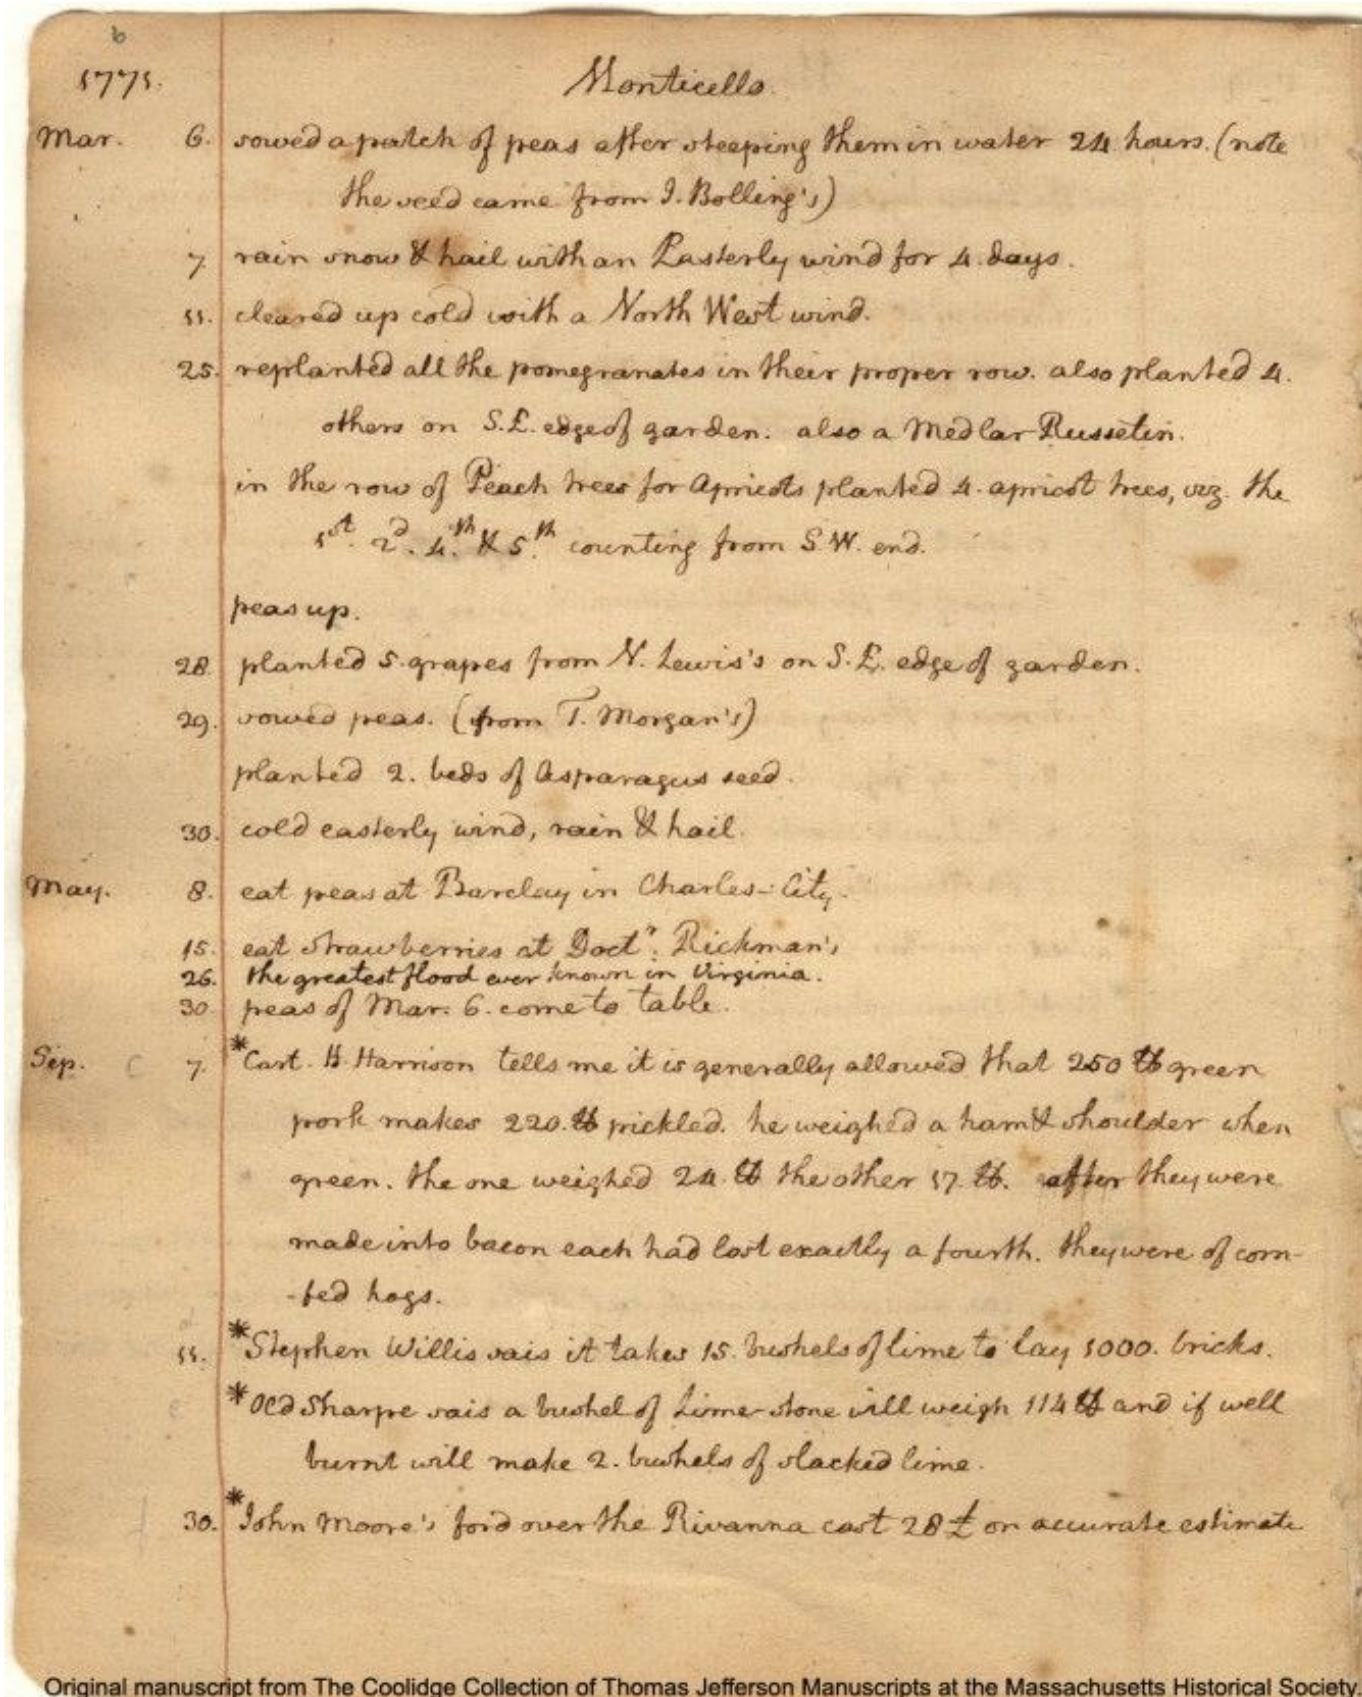 6
1771.
Monticello.
Mar. 6. sowed a patch of peas after steeping them in water 24 hours. (note
the seed came from I. Bolling's)
7. rain snow & hail with an Easterly wind for 4. days.
11. cleared up cold with a North West wind.
25. replanted all the pomegranates in their proper row. also planted 4.
others on S.E. edge of garden. also a Medlar Russetin.
in the row of Peach trees for Apricots planted 4. apricot trees, viz. the
1st. 2d. 4.th & 5.th counting from S.W. end.
peas up.
28. planted 5. grapes from N. Lewis's on S.E. edge of garden.
29. sowed peas. (from T. Morgan's)
planted 2. beds of Asparagus seed.
30. cold easterly wind, rain & hail.
May. 8. eat peas at Barclay in Charles-City.
15. eat strawberries at Doctr. Rickman's
26. the greatest flood ever known in Virginia.
30. peas of Mar. 6. come to table.
Sep. 7. *Cart. H. Harrison tells me it is generally allowed that 250 ℔ green
pork makes 220. ℔ pickled. he weighed a ham & shoulder when
green. the one weighed 24. ℔ the other 17. ℔. after they were
made into bacon each had lost exactly a fourth. they were of corn-
-fed hogs.
11. *Stephen Willis sais it takes 15. bushels of lime to lay 1000. bricks.
*Old Sharpe sais a bushel of Limestone will weigh 114 ℔ and if well
burnt will make 2. bushels of slacked lime.
30. *John Moore's ford over the Rivanna cost 28 £ on accurate estimate
Original manuscript from The Coolidge Collection of Thomas Jefferson Manuscripts at the Massachusetts Historical Society.